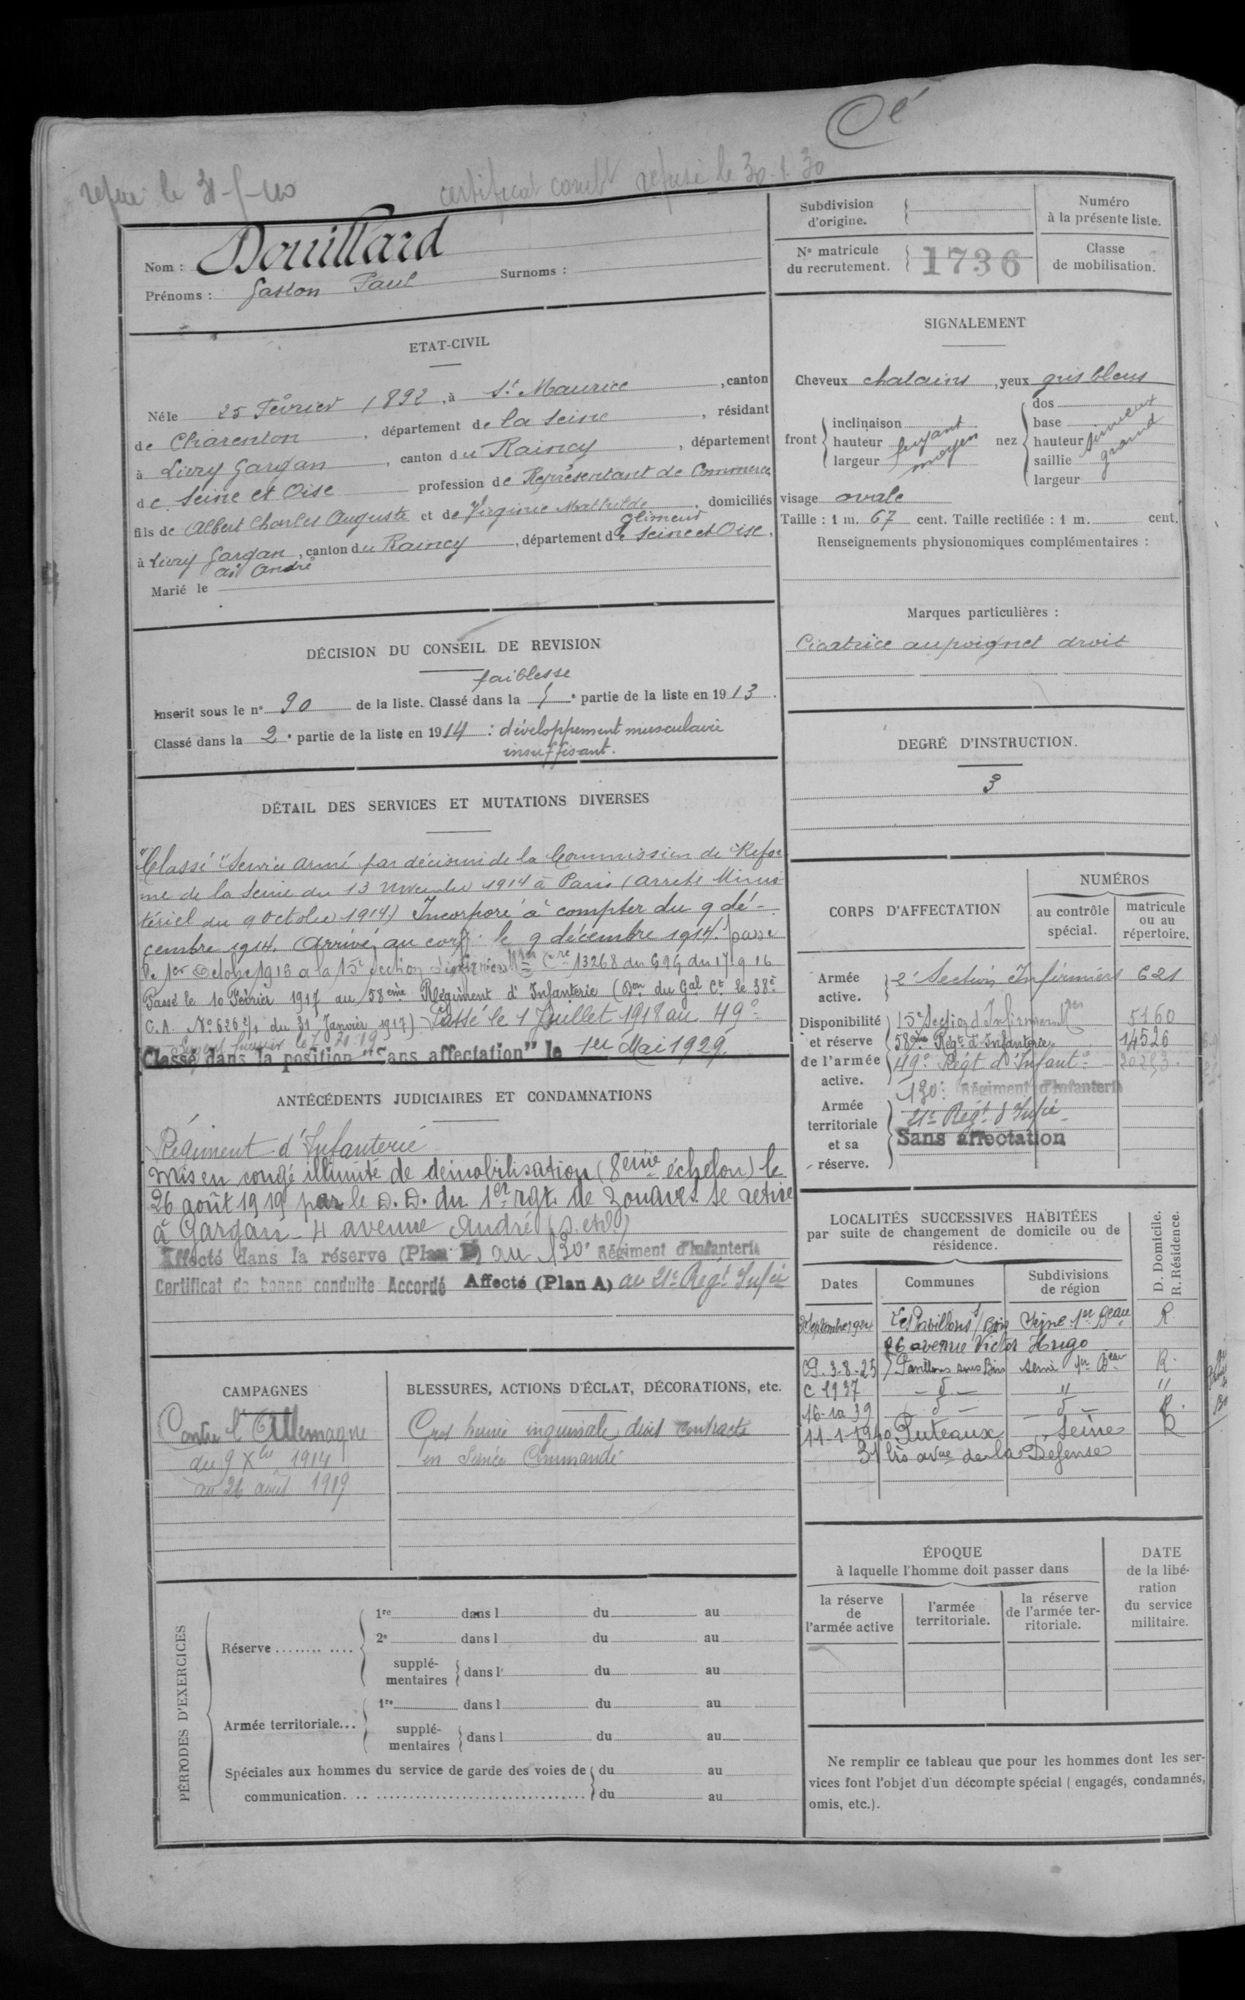 Cé
refusé le 31-5-40
certificat combt refusé le 30-1-30
Nom : Douillard
Prénoms : Gaston Paul Surnoms :
Subdivision d'origine.
Numéro à la présente liste.
N° matricule du recrutement. 1736
Classe de mobilisation.
ETAT-CIVIL
Né le 25 Février 1892, à St Maurice, canton
de Charenton, département de la Seine, résidant
à Livry Gargan, canton du Raincy, département
de Seine et Oise profession de Représentant de Commerce
fils de Albert Charles Auguste et de Virginie Mathilde, domiciliés
à Livry Gargan, canton du Raincy, département de Seine et Oise.
av André
Marié le
SIGNALEMENT
Cheveux chatains, yeux gris bleus
front inclinaison hauteur largeur fuyant moyen
nez dos base hauteur saillie largeur sinueux grand
visage ovale
Taille : 1 m. 67 cent. Taille rectifiée : 1 m. cent.
Renseignements physionomiques complémentaires :
Marques particulières :
Cicatrice au poignet droit
DÉCISION DU CONSEIL DE REVISION
faiblesse
Inscrit sous le n° 90 de la liste. Classé dans la 5e partie de la liste en 1913.
Classé dans la 2e partie de la liste en 1914 : développement musculaire
insuffisant.
DEGRÉ D'INSTRUCTION.
3
DÉTAIL DES SERVICES ET MUTATIONS DIVERSES
"Classé" Service armé par décision de la Commission de Refor
me de la Seine du 13 novembre 1914 à Paris (arrêté Minis
tériel du 9 Octobre 1914) Incorporé à compter du 9 dé-
cembre 1914. Arrivé au corps le 9 décembre 1914. passé
le 1er Octobre 1916 à la 15e Section d'infirmiers Mres 13268 du 17 9 16
Passé le 10 Février 1917 au 58ème Régiment d'Infanterie (Don du Gal Ct le 38e
C.A. No 6262/1 du 31 Janvier 1917) Passé le 1 Juillet 1918 au 49e
Classé dans la position "Sans affectation" le 1er Mai 1929.
ANTÉCÉDENTS JUDICIAIRES ET CONDAMNATIONS
Régiment d'Infanterie
Mis en congé illimité de démobilisation (8ème échelon) le
26 août 1919 par le D.D. du 1er rgt. de Zouaves se retire
à Gargan - 4 avenue André (S. et O)
Affecté dans la réserve (Plan ) au 130e Régiment d'Infanterie
Certificat de bonne conduite Accordé Affecté (Plan A) au 21e Regt Infie
CORPS D'AFFECTATION
NUMÉROS
au contrôle spécial.
matricule ou au répertoire.
Armée active. 2e Section Infirmiers 621
Disponibilité et réserve de l'armée active.
15e Section d'Infirmiers Mres 5160
58ème Régt d'Infanterie 14526
49e Régt d'Infante 20253
130e Régiment d'Infanterie
Armée territoriale et sa réserve.
21e Régt d'Infie
Sans affectation
LOCALITÉS SUCCESSIVES HABITÉES
par suite de changement de domicile ou de résidence.
Dates Communes Subdivisions de région D. Domicile. R. Résidence.
Les Pavillons s/ Bois Seine 1er Beau R.
26 avenue Victor Hugo
3-8-25 Pavillons sous Bois Seine 1er Beau R.
C 1937 - d - " "
16-10-39 - d - - d - R.
11-1-1940 Puteaux Seine R
31 bis avue de la Défense
CAMPAGNES
Contre l'Allemagne
du 9 Xbre 1914
au 26 août 1919
BLESSURES, ACTIONS D'ÉCLAT, DÉCORATIONS, etc.
Gros hernie inguinale droit contractée
en Service Commandé
PÉRIODES D'EXERCICES
Réserve
1re dans l du au
2e dans l du au
supplémentaires dans l' du au
Armée territoriale...
1re dans l du au
supplémentaires dans l du au
Spéciales aux hommes du service de garde des voies de du au
communication. du au
ÉPOQUE
à laquelle l'homme doit passer dans
la réserve de l'armée active
l'armée territoriale.
la réserve de l'armée territoriale.
DATE de la libération du service militaire.
Ne remplir ce tableau que pour les hommes dont les ser-
vices font l'objet d'un décompte spécial ( engagés, condamnés,
omis, etc.).